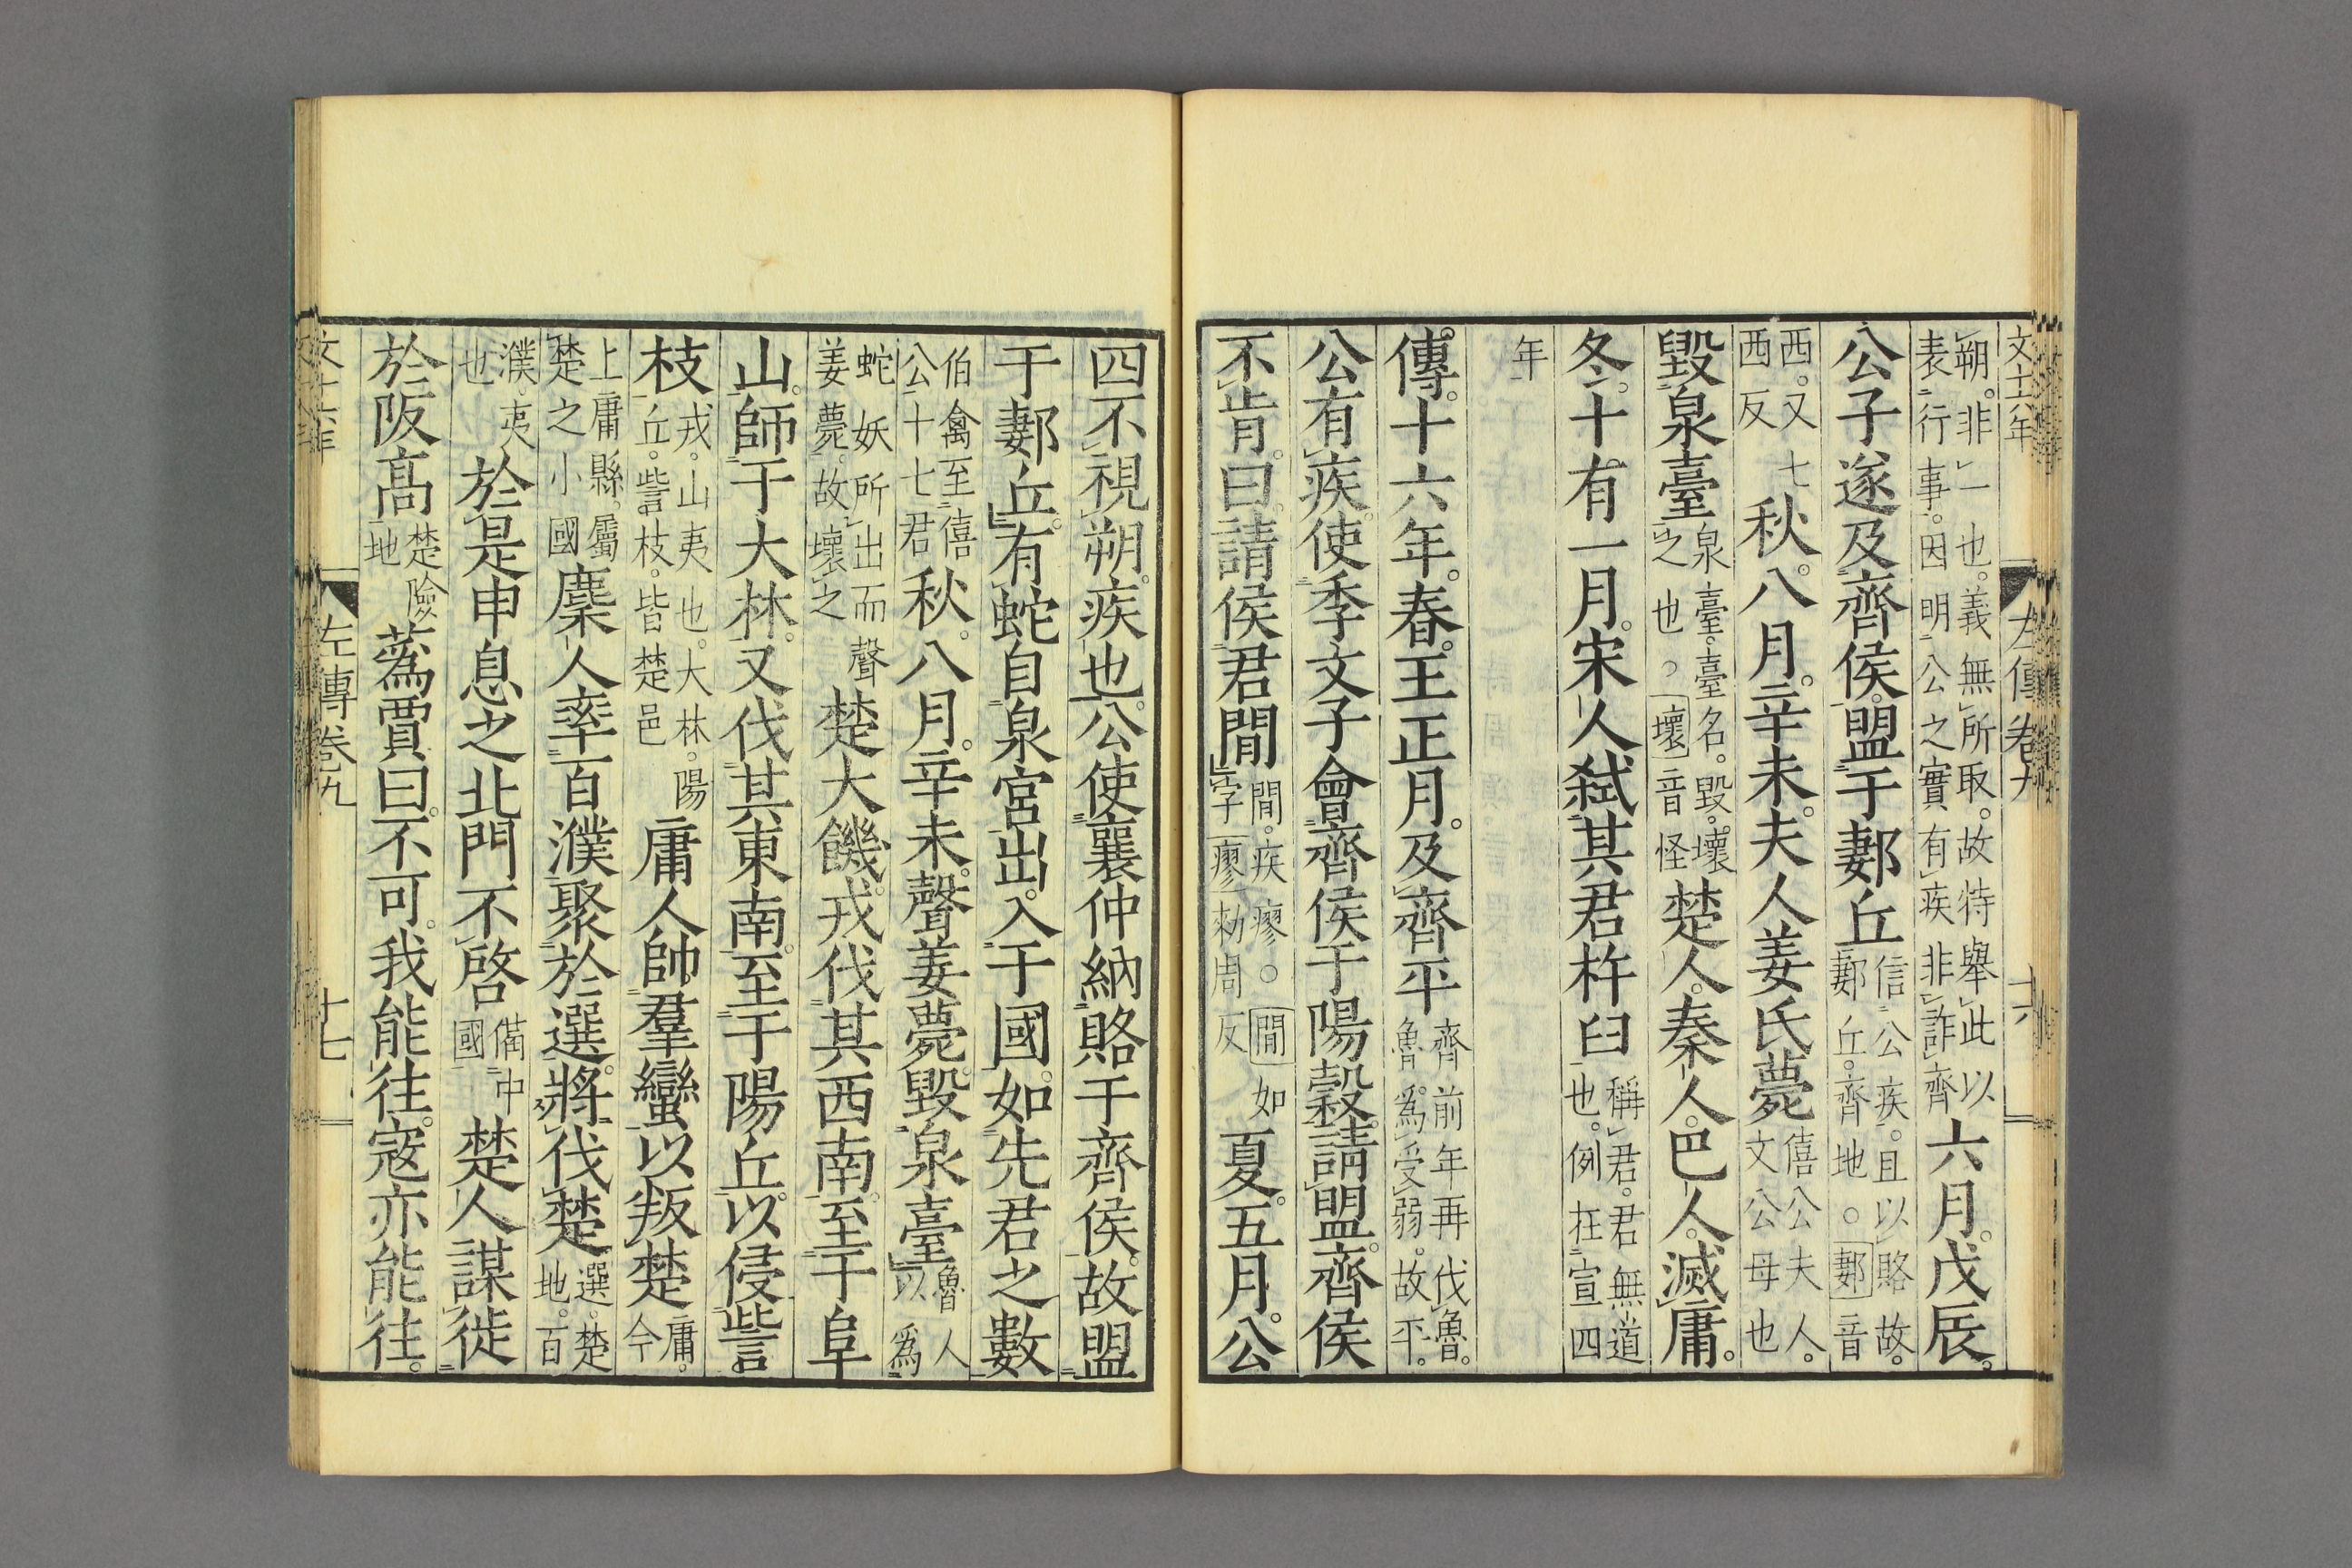 文十六年 左傳卷九 十六
朔。非一也。義無所取。故特舉此以表行事。因明公之實有疾非詐齊六月。戊辰。
公子遂及齊侯。盟于郪丘信公疾。且以賂故。郪丘。齊地。○郪音
西。又七西反秋。八月。辛未。夫人姜氏薨僖公夫人。文公母也
毀泉臺泉臺。臺名。毀。壞之也。○壞音怪楚人。秦人。巴人。滅庸。
冬。十有一月。宋人弑其君杵臼稱君。君無道也。例在宣四
年
傳。十六年。春。王正月。及齊平齊前年再伐魯。魯爲受弱。故平。
公有疾。使季文子會齊侯于陽穀。請盟。齊侯
不肯。曰。請俟君閒閒。疾瘳。○閒如字瘳勑周反夏。五月。公
四不視朔。疾也。公使襄仲納賂于齊侯。故盟
于郪丘。有蛇自泉宮出。入于國。如先君之數
伯禽至僖公十七君秋。八月。辛未。聲姜薨。毀泉臺魯人以爲
蛇妖所出而聲姜薨。故壞之楚大饑。戎伐其西南。至于阜
山。師于大林。又伐其東南。至于陽丘。以侵訾
枝戎。山夷也。大林。陽丘。訾枝。皆楚邑庸人帥羣蠻以叛楚庸。今
上庸縣。屬楚之小國麇人率百濮聚於選。將伐楚選。楚地。百
濮。夷也於是申息之北門不啓備中國楚人謀徙
於阪高楚險地蒍賈曰。不可。我能往。寇亦能往。
文十六年 左傳卷九 十七